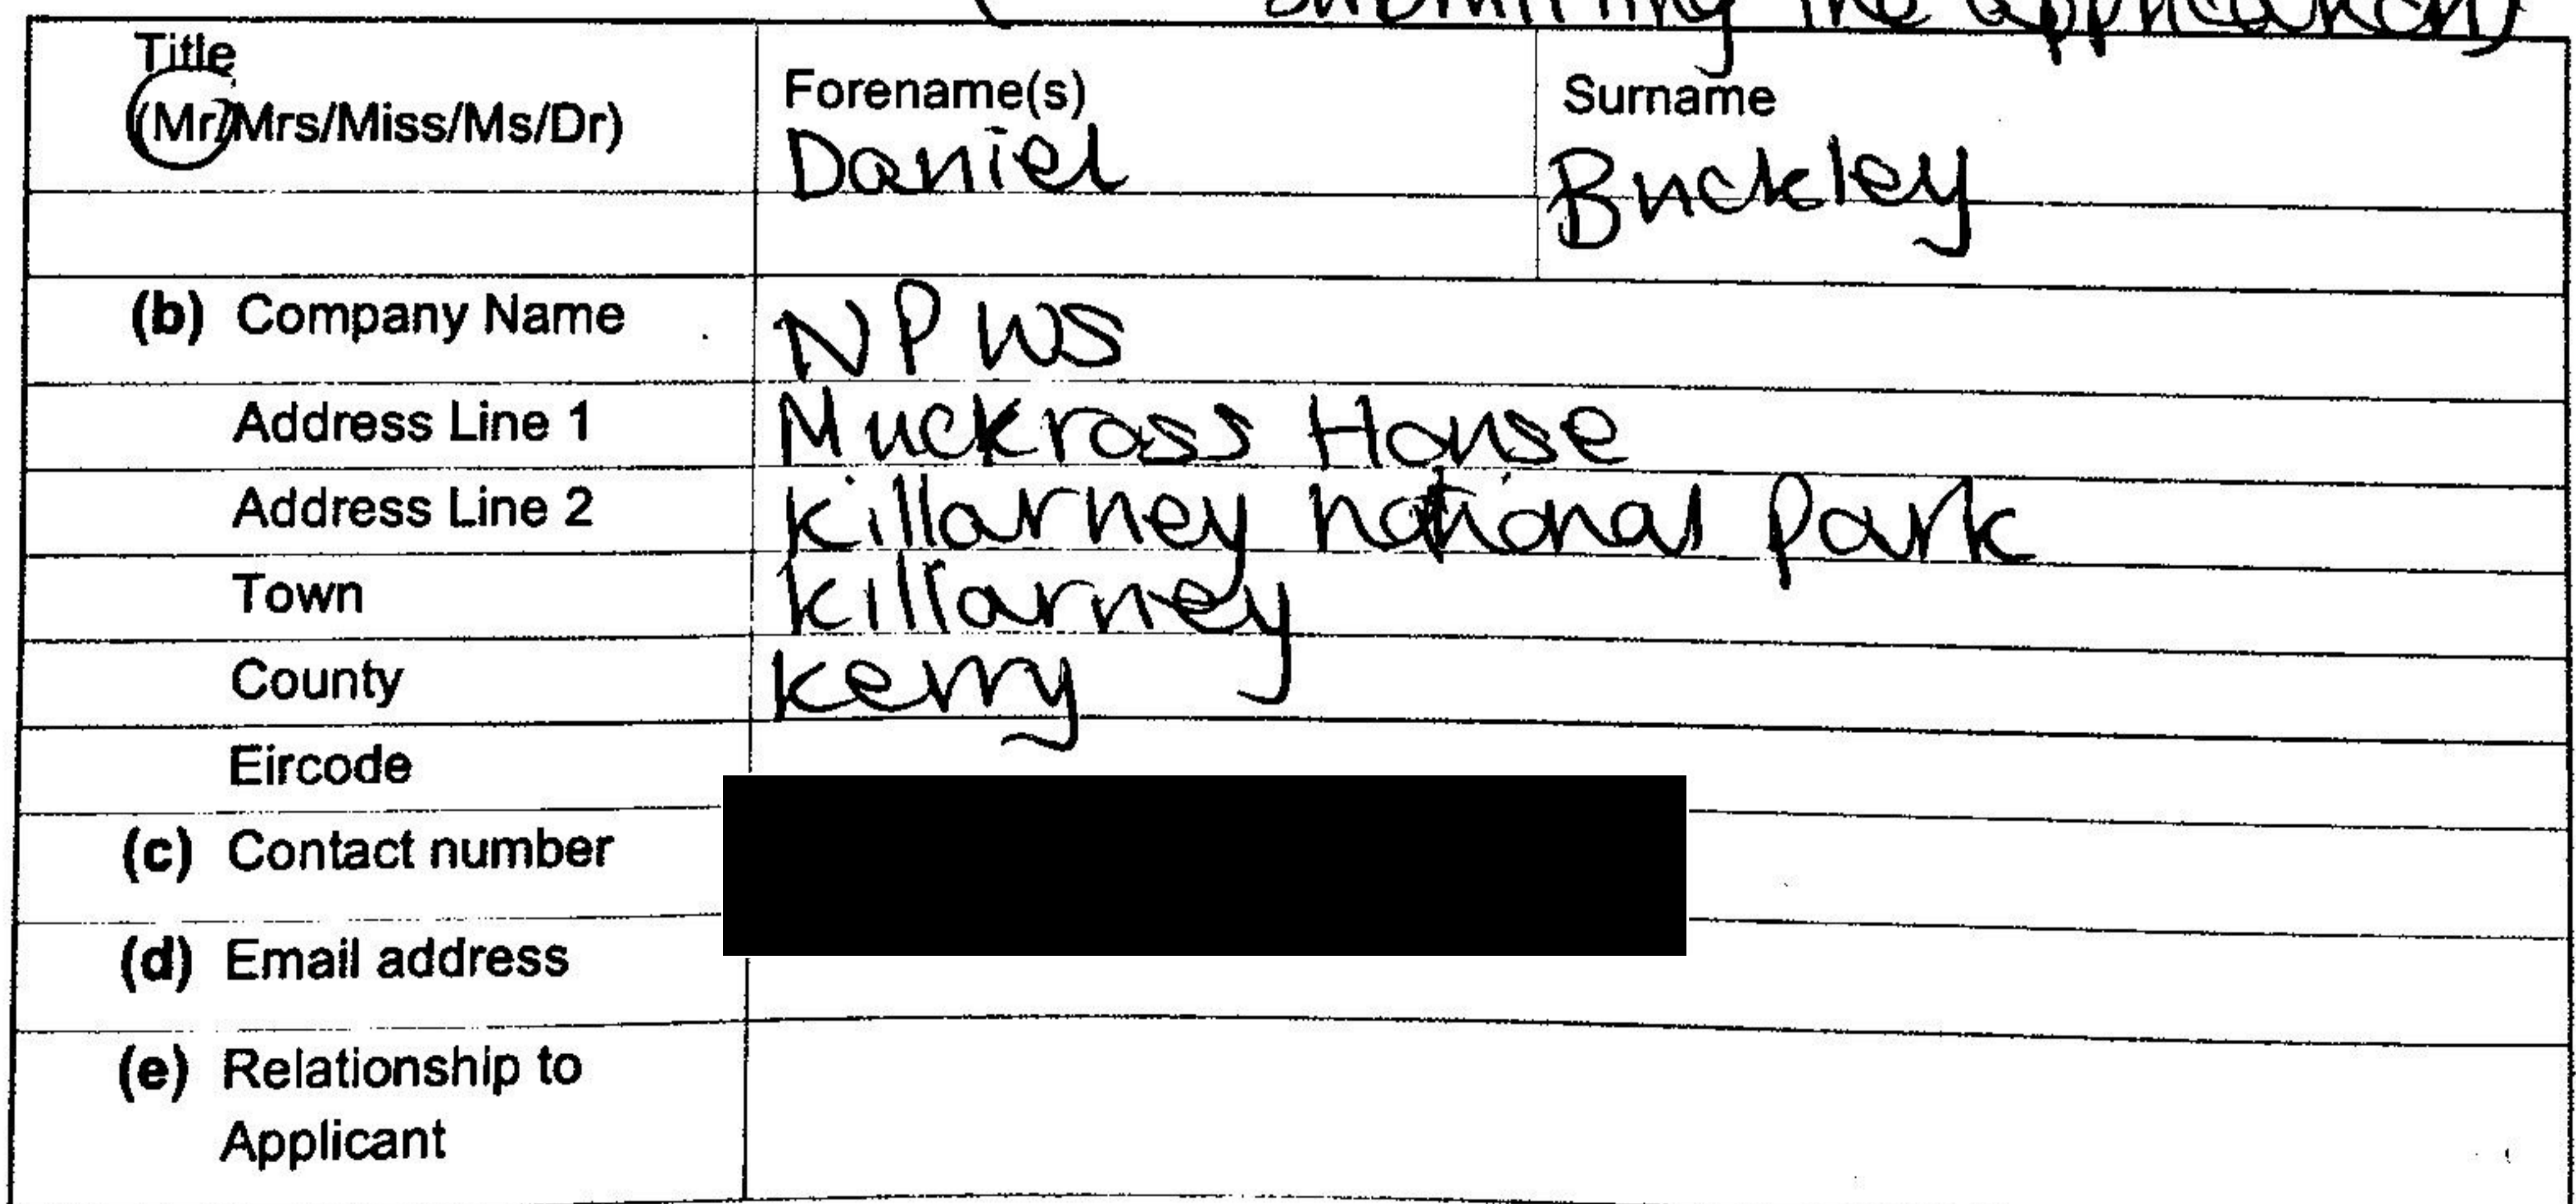 submitting the application)
Title
(Mr/Mrs/Miss/Ms/Dr)
Forename(s)
Daniel
Surname
Buckley
(b) Company Name
NPWS
Address Line 1
Muckross House
Address Line 2
killarney national park
Town
killarney
County
kerry
Eircode
(c) Contact number
(d) Email address
(e) Relationship to
Applicant